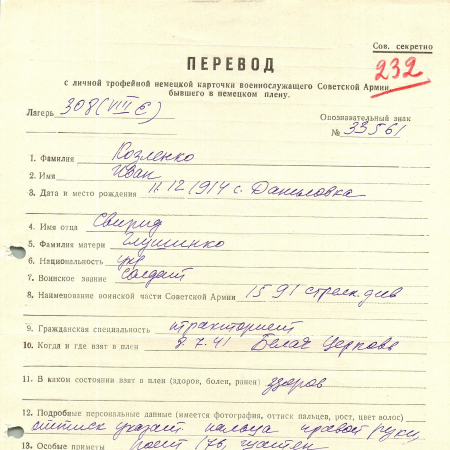 Сов. секретно
232
ПЕРЕВОД
с личной трофейной немецкой карточки военнослужащего Советской Армии,
бывшего в немецком плену.
Лагерь 308 (VIII E)
Опознавательный знак
№ 33561
1. Фамилия Козленко
2. Имя Иван
3. Дата и место рождения 11.12.1914 с. Даниловка
4. Имя отца Свирид
5. Фамилия матери Глушинко
6. Национальность укр
7. Воинское звание солдат
8. Наименование воинской части Советской Армии 1591 стрелк. див
9. Гражданская специальность тракторист
10. Когда и где взят в плен 8.7.41 Белая Церковь
11. В каком состоянии взят в плен (здоров, болен, ранен) здоров
12. Подробные персональные данные (имеется фотография, оттиск пальцев, рост, цвет волос)
оттиск указат. пальца правой руки
13. Особые приметы рост 176, шатен